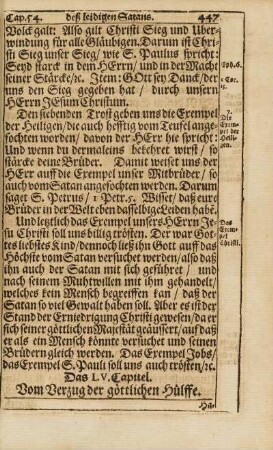 Cap. 54. deß leidigten Satans. 447
Volck galt: Also gilt Christi Sieg und Uber-
windung für alle Gläubigen. Darum ist Chri-
sti Sieg unser Sieg/ wie S. Paulus spricht:
Seyd starck in dem HErrn/ und in der Macht
seiner Stärcke/ ꝛc. Item: GOtt sey Danck/ der
uns den Sieg gegeben hat / durch unsern
HErrn JEsum Christum.
Eph. 6.
1 Cor.
15.
Den siebenden Trost geben uns die Exempel
der Heiligen/ die auch hefftig vom Teufel ange-
fochten worden/ davon der HErr hie spricht:
Und wenn du dermaleins bekehret wirst / so
stärcke deine Brüder. Damit weiset uns der
HErr auff die Exempel unser Mitbrüder / so
auch vom Satan angefochten werden. Darum
saget S. Petrus / 1 Petr. 5. Wisset/ daß eure
Brüder in der Welt eben dasselbige Leiden habē.
7.
Die
Exem-
pel der
Heili-
gen.
Und letzlich das Exempel unsers HErrn Je-
su Christi soll uns billig trösten. Der war Got-
tes liebstes Kind/ dennoch ließ ihn Gott auff das
Höchste vom Satan versuchet werden/ also daß
ihn auch der Satan mit sich geführet / und
nach seinem Muthwillen mit ihm gehandelt/
welches kein Mensch begreiffen kan / daß der
Satan so viel Gewalt haben soll. Aber es ist der
Stand der Erniedrigung Christi gewesen/ da er
sich seiner göttlichen Majestät geäussert/ auf daß
er als ein Mensch könnte versuchet und seinen
Brüdern gleich werden. Das Exempel Jobs/
das Exempel S. Pauli soll uns auch trösten/ ꝛc.
Das
Exem-
pel
Christi.
Das LV. Capitel.
Vom Verzug der göttlichen Hülffe.